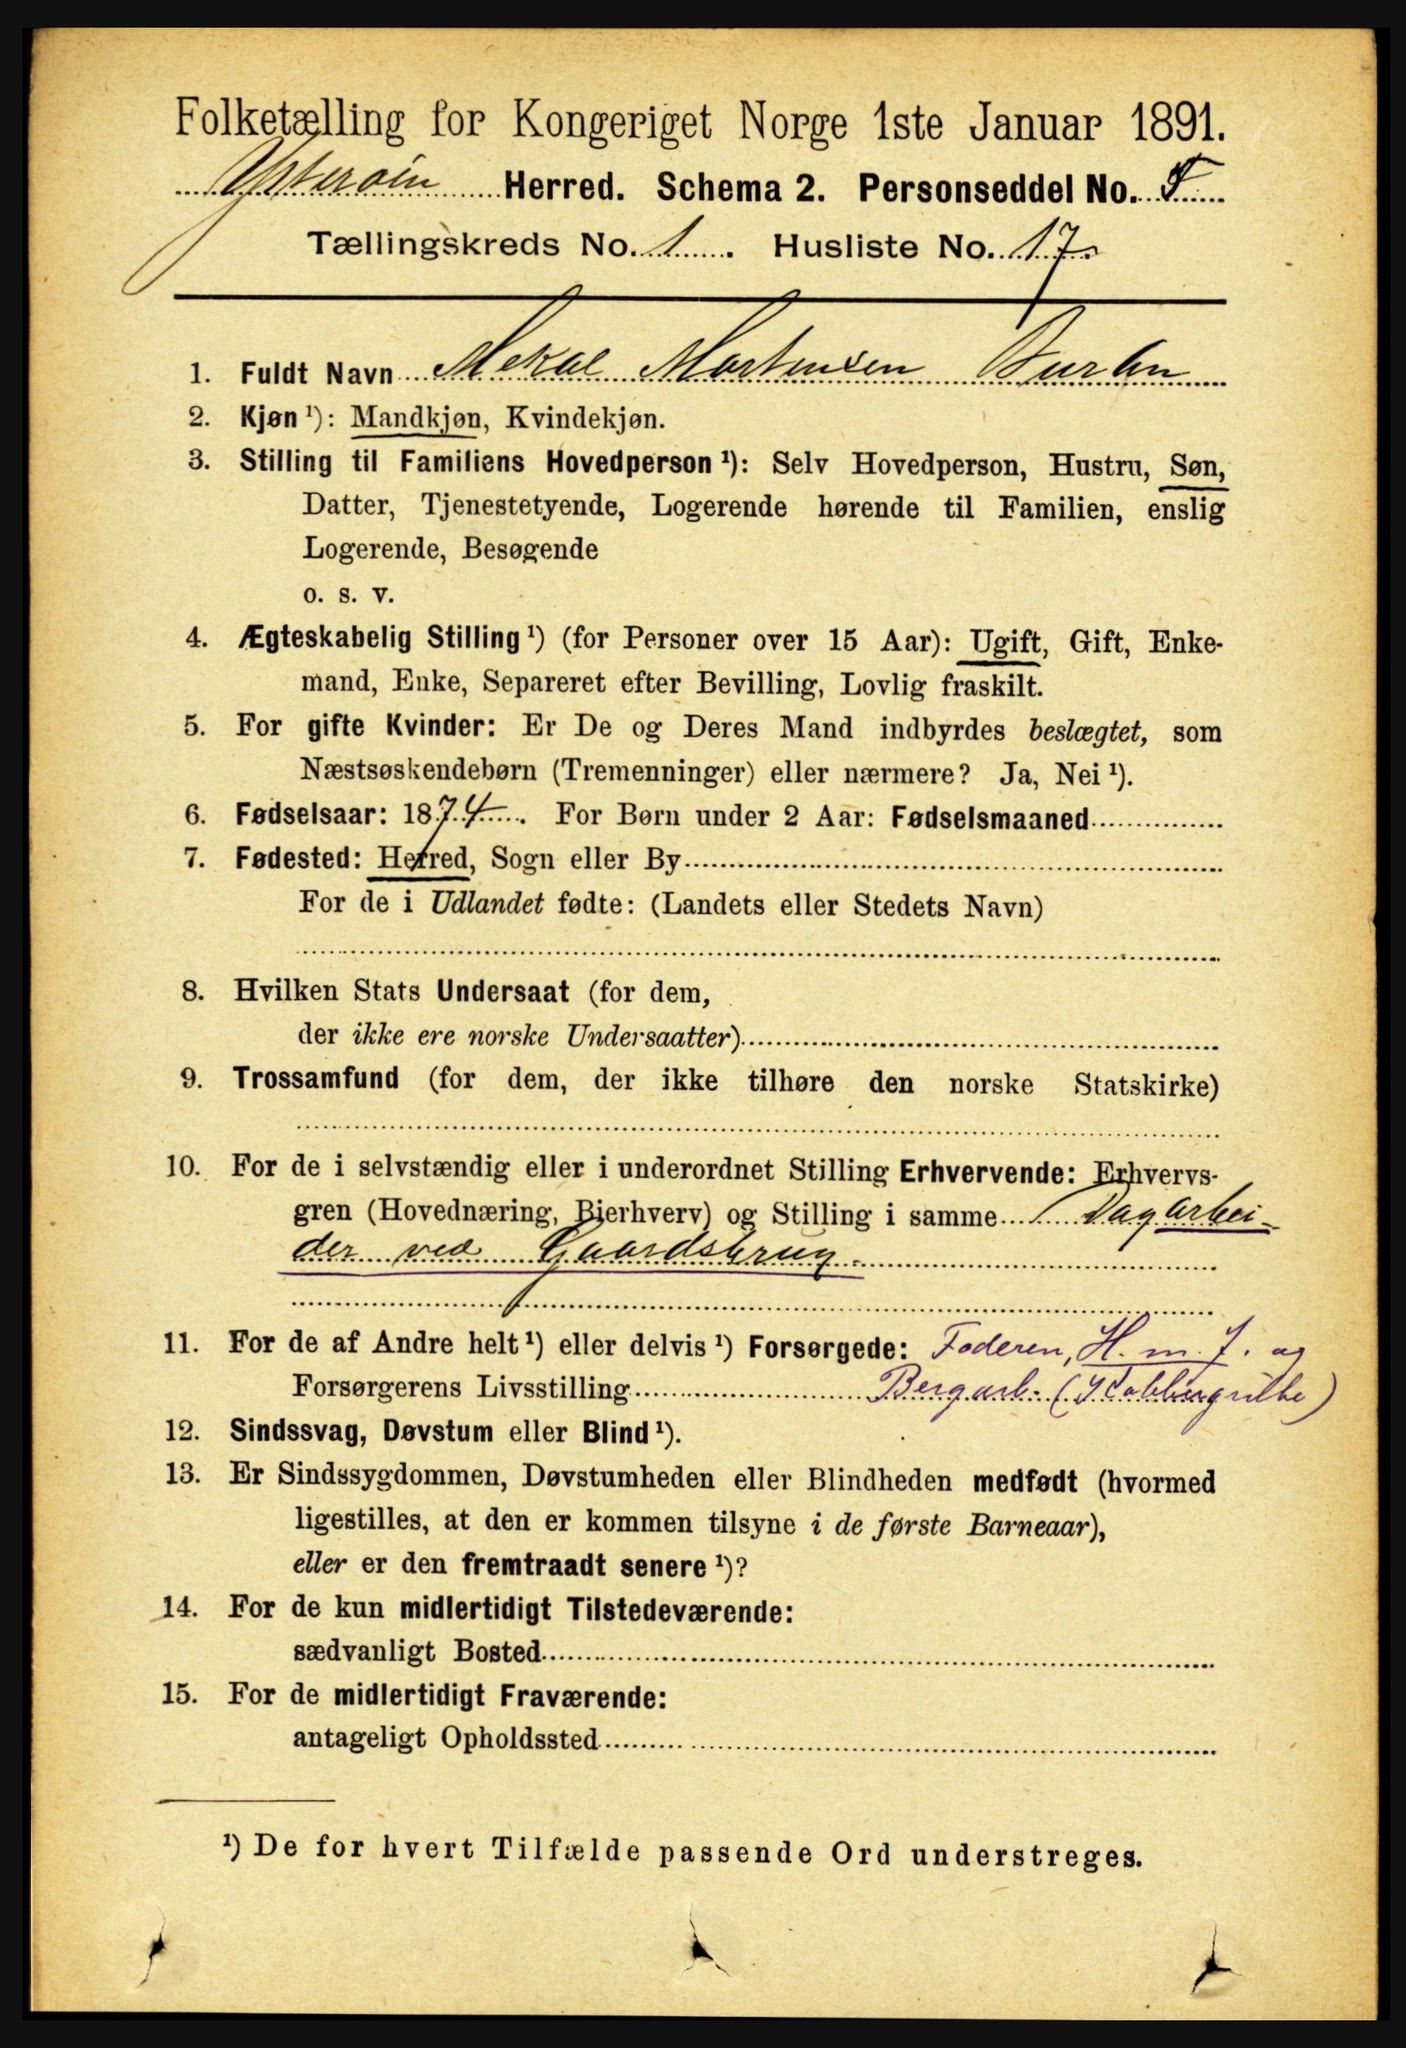 Folketælling for Kongeriget Norge 1ste Januar 1891.
Ytterøen Herred. Schema 2. Personseddel No.
Tællingskreds No. 1. Husliste No. 17.
1. Fuldt Navn Mekal Mortensen
2. Kjøn¹): Mandkjøn, Kvindekjøn.
3. Stilling til Familiens Hovedperson¹): Selv Hovedperson, Hustru, Søn,
Datter, Tjenestetyende, Logerende hørende til Familien, enslig
Logerende, Besøgende
o. s. v.
4. Ægteskabelig Stilling¹) (for Personer over 15 Aar): Ugift, Gift, Enke-
mand, Enke, Separeret efter Bevilling, Lovlig fraskilt.
5. For gifte Kvinder: Er De og Deres Mand indbyrdes beslægtet, som
Næstsøskendebørn (Tremenninger) eller nærmere? Ja, Nei¹).
6. Fødselsaar: 1874. For Børn under 2 Aar: Fødselsmaaned
7. Fødested: Herred, Sogn eller By
For de i Udlandet fødte: (Landets eller Stedets Navn)
8. Hvilken Stats Undersaat (for dem,
der ikke ere norske Undersaatter)
9. Trossamfund (for dem, der ikke tilhøre den norske Statskirke)
10. For de i selvstændig eller i underordnet Stilling Erhvervende: Erhvervs-
gren (Hovednæring, Bierhverv) og Stilling i samme Dagarbei-
der ved Gaardsbrug
11. For de af Andre helt¹) eller delvis¹) Forsørgede: Faderen, H. m. J. og
Forsørgerens Livsstilling Bergarb. (Kobbergrube)
12. Sindssvag, Døvstum eller Blind¹).
13. Er Sindssygdommen, Døvstumheden eller Blindheden medfødt (hvormed
ligestilles, at den er kommen tilsyne i de første Barneaar),
eller er den fremtraadt senere¹)?
14. For de kun midlertidigt Tilstedeværende:
sædvanligt Bosted
15. For de midlertidigt Fraværende:
antageligt Opholdssted
¹) De for hvert Tilfælde passende Ord understreges.